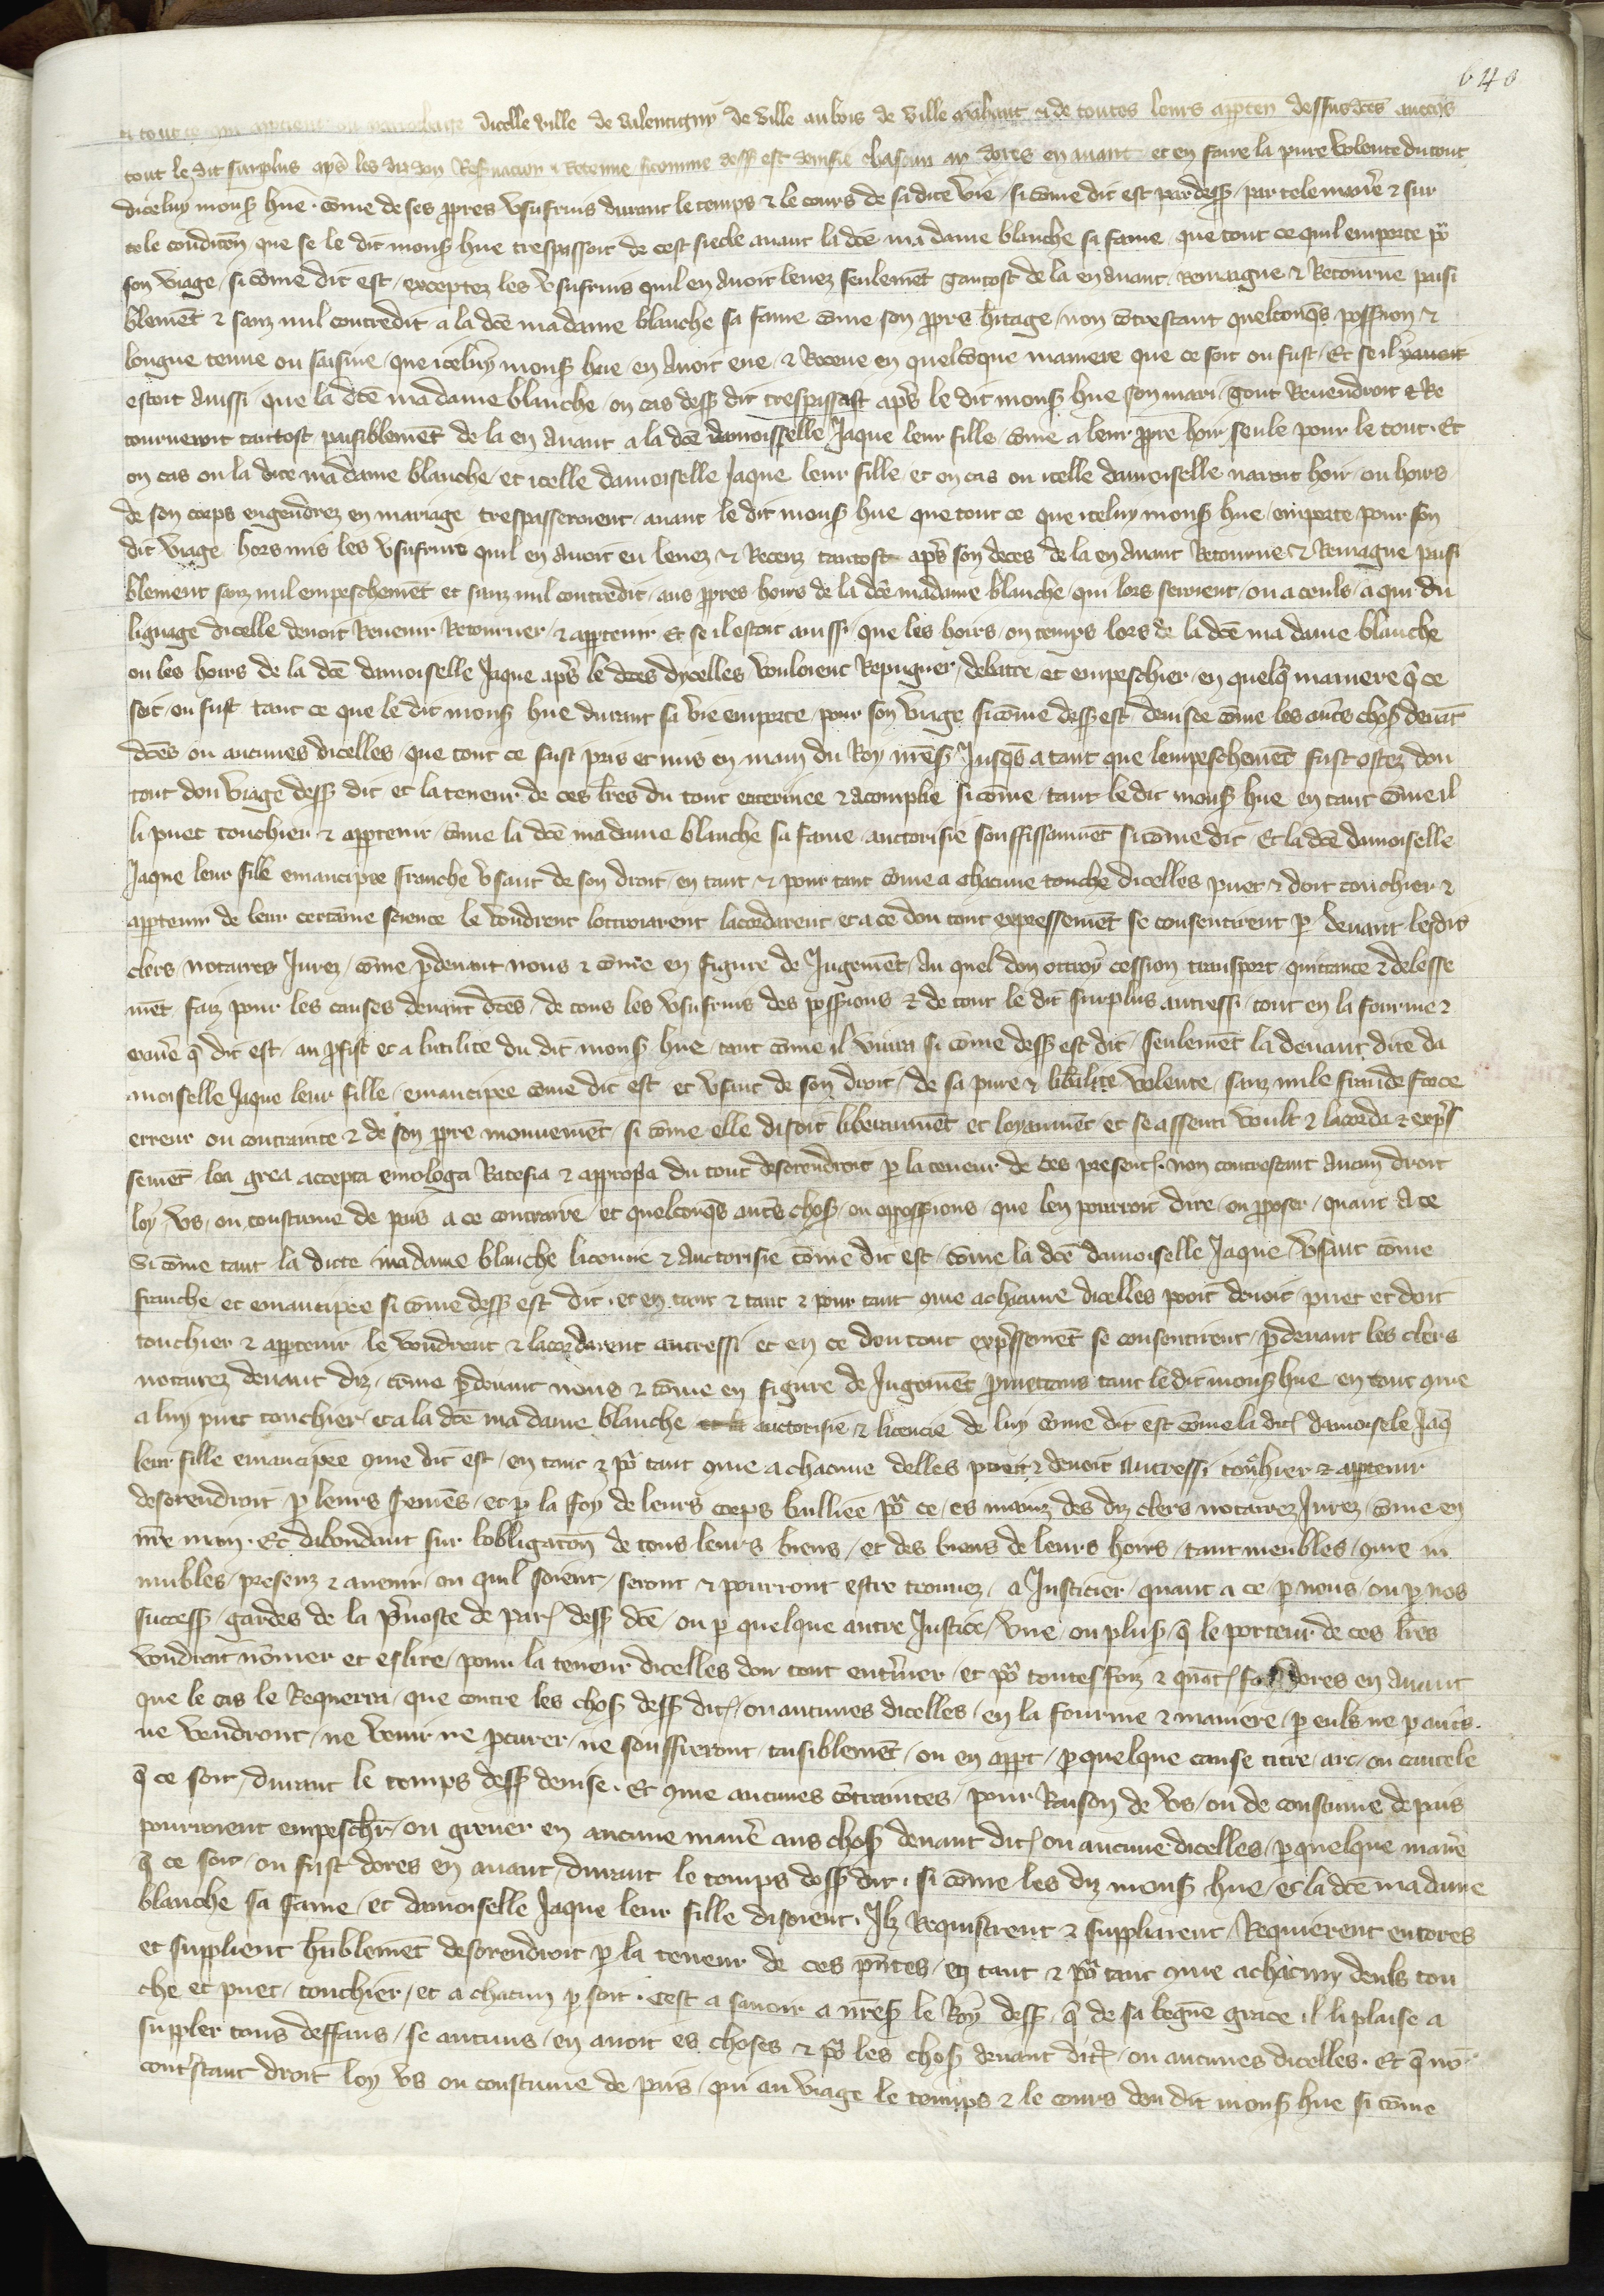 640
dicelle ville de Valentigny de ville au bois de ville mahaut & de toutes leurs apparten dessusdces
tout le dit surplus apres les diz don Reseruacion & Retenue sicomme dess est deuise dores en auant et en faire la pure volente du tout
diceluy mons hue . come de ses ppres vsufruis durant le temps & le cours de sa dite vie / si come dit est par dess / par tele maniere & sur
tele condicon que se le dit mons hue trespassoit de cest siecle auant la dce ma dame blanche sa fame / que tout ce quil emporte por
son viage / si come dit est / exceptez les vsufruis quil en auoit leuez seulement tantost de la en auant Remaigne & Retourne paisi
blement & sanz nul contredit a la dce ma dame blanche sa fame come son ppre hitage / non cotrestant quelconqs possession &
longue tenue ou saisine / que iceluy mons hue / en auoit eue / & Receue en quelcoque maniere que ce soit ou fust / Et se il
estoit aussi que la dce ma dame blanche / ou cas dess dit trespassast apres le dit mons hue son mari / tout Reuendroit & Re
tourneroit tantost paisiblement de la en auant a la dce damoisselle Jaque leur fille / come a leur ppre hoir seule pour le tout . Et
ou cas ou la dite ma dame blanche / et icelle damoiselle Jaque leur fille / et ou cas ou icelle damoiselle nauroit hoir / ou hoirs
de son corps engendrez en mariage trespasseroient / auant le dit mons hue que tout ce que iceluy mons hue / emporte / pour son
dit viage hors mis les vsufruis quil en auoit eu leuez & Receuz tantost apres son deces de la en auant Retourne & Remaigne paisi
blement sanz nul empeschement et sanz nul contredit / aus ppres hoirs de la dce madame blanche / qui lors seroient / ou a ceuls / a qui du
lignage dicelle deuoit Reuenir Retourner / & appartenir Et se il estoit aussi / que les hoirs / ou temps lors de la dce ma dame blanche
ou les hoirs de la dce damoiselle Jaque apres le deces dycelles vouloient Repugner / debatre / et empeschier / en quelq maniere q ce
soit / ou fust tant ce que le dit mons hue durant sa vie emporte / pour son viage sicome dess est deuise come les autres choses deuat
dces ou aucunes dicelles / que tout ce fust pris et mis en main du Roy nres Jusqs a tant que lempeschement fust ostez dou
tout dou viage dess dit et la teneur de ces lres du tout enterinee & acomplie sicome / tant le dit mons hue en tant come il
li puet touchier & appartenir / come la dce ma dame blanche sa fame auctorisie souffissamment si come dit / Et la dce damoiselle
Jaque leur fille emancipee franche vsant de son droit / en tant & pour tant come a chacune touche dicelles puet & doit touchier &
appartenir de leur certaine science le voudrent lottroiarent lacordarent et a ce dou tout expressement se consentirent p deuant lesdis
clers notaires Jurez / come pdeuant nous & come en figure de Jugement / Au quel don ottroy cession transport quittance & delesse
ment faiz pour les causes deuant dces / de tous les vsufruis des possessions & de tout le dit surplus autressi / tout en la fourme &
maniere q dit est / au profist et a lutilite du dit mons hue / tant come il viura si come dess est dit / seulement la deuant dite da
moiselle Jaque leur fille / emancipee come dit est et vsant de son droit / de sa pure & liberale volente / sanz nule fraude force
erreur ou contrainte & de son ppre mouuement / si come elle disoit liberaument et loyaument / et se assenti voult & lacorda & expres
sement loa grea accepta emologa Ratefia & approuva du tout desorendroit p la teneur de ces present . non contrestant aucun droit
loy / vs / ou coustume de pais a ce contraire et quelconqs autres choses / ou opposicions / que len pourroit dire / ou pposer / quant a ce
Si come tant la dicte ma dame blanche licencie & auctorisie come dit est / come la dce damoiselle Jaque / vsant come
franche et emancipee si come dess est dit . et en tant & tant & pour tant come a chacune dicelles pooit deuoit / puet et doit
touchier & appartenir le voudrent & lacordarent autressi et en ce dou tout expressement se consentirent / pdeuant les clers
notairez deuant diz / come pdeuant nous & come en figure de Jugement pmettans tant le dit mons hue en tant come
a luy puet touchier / et a la dce ma dame blanche auctorisie & licencie de luy come dit est come la dict damoisele Jaq
leur fille emancipee come dit est / en tant & por tant come a chacune delles pooit & deuoit autressi touchier & appartenir
desorendroit p leurs sermens / et p la foy de leurs corps bailliee por ce / es mains des diz clers notairez Jurez / come en
nre main . Et dabondant sur lobligacon de tous leurs biens / et des biens de leurs hoirs / tant meubles / come in
mubles / presenz & auenir / ou quil soient / seront & pourront estre trouuez / a Justicier / quant a ce / p nous / ou p nos
success / gardes de la preuoste de Par dess dce / ou p quelque autre Justice / vne / ou plus / q le porteur de ces lres
voudroit nomer et eslire / pour la teneur dicelles dou tout enteriner / et por toutes foiz & quat dores en auant
que le cas le Requerra / que contre les choses dess dit / ou aucunes dicelles / en la fourme & maniere / p euls ne p autres .
ne vendront / ne venir ne pcurer / ne souffreront / taisiblement / ou en appt / p quelque cause titre / art / ou cautele
q ce soit / durant le temps dess deuise . Et come aucunes cotraintes / pour Raison de vs / ou de coustume de pais
pourroient empeschier / ou greuer en aucune maniere aus choses deuant dit / ou aucune dicelles / p quelque maniere
q ce soit / ou fust dores en auant / durant le temps dess dit . si come les diz mons hue / et la dce ma dame
blanche sa fame / et damoiselle Jaque leur fille disoient . Ilz Requistrent & suppliarent / Requierent encores
et supplient humblement desorendroit p la teneur de ces pntes / en tant & por tant come a chacun deuls tou
che et puet / touchier / et a chacun p soit . Cest a sauoir a nres le Roy dess / q de sa begne grace il li plaise a
suppler tous deffaus / se aucuns / en auoit es choses & por les choses deuant dit / ou aucunes dicelles . Et q no
contstant droit loy vs ou coustume de pais / qui au viage le temps & le cours dou dit mons hue si come